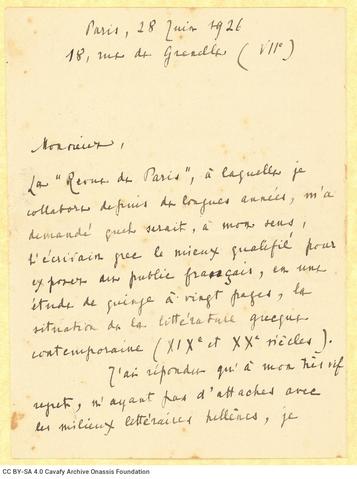 Paris, 28 Juin 1926
18, rue de Grenelle (VIIe)
Monsieur,
La "Revue de Paris", à laquelle je
collabore depuis de longues années, m'a
demandé quel serait, à mon sens,
l'écrivain grec le mieux qualifié pour
exposer au public français, en une
étude de quinze à vingt pages, la
situation de la littérature grecque
contemporaine (XIXe et XXe siècles).
J'ai répondu qu'à mon très vif
regret, n'ayant pas d'attaches avec
les milieux littéraires hellènes, je
CC BY-SA 4.0 Cavafy Archive Onassis Foundation